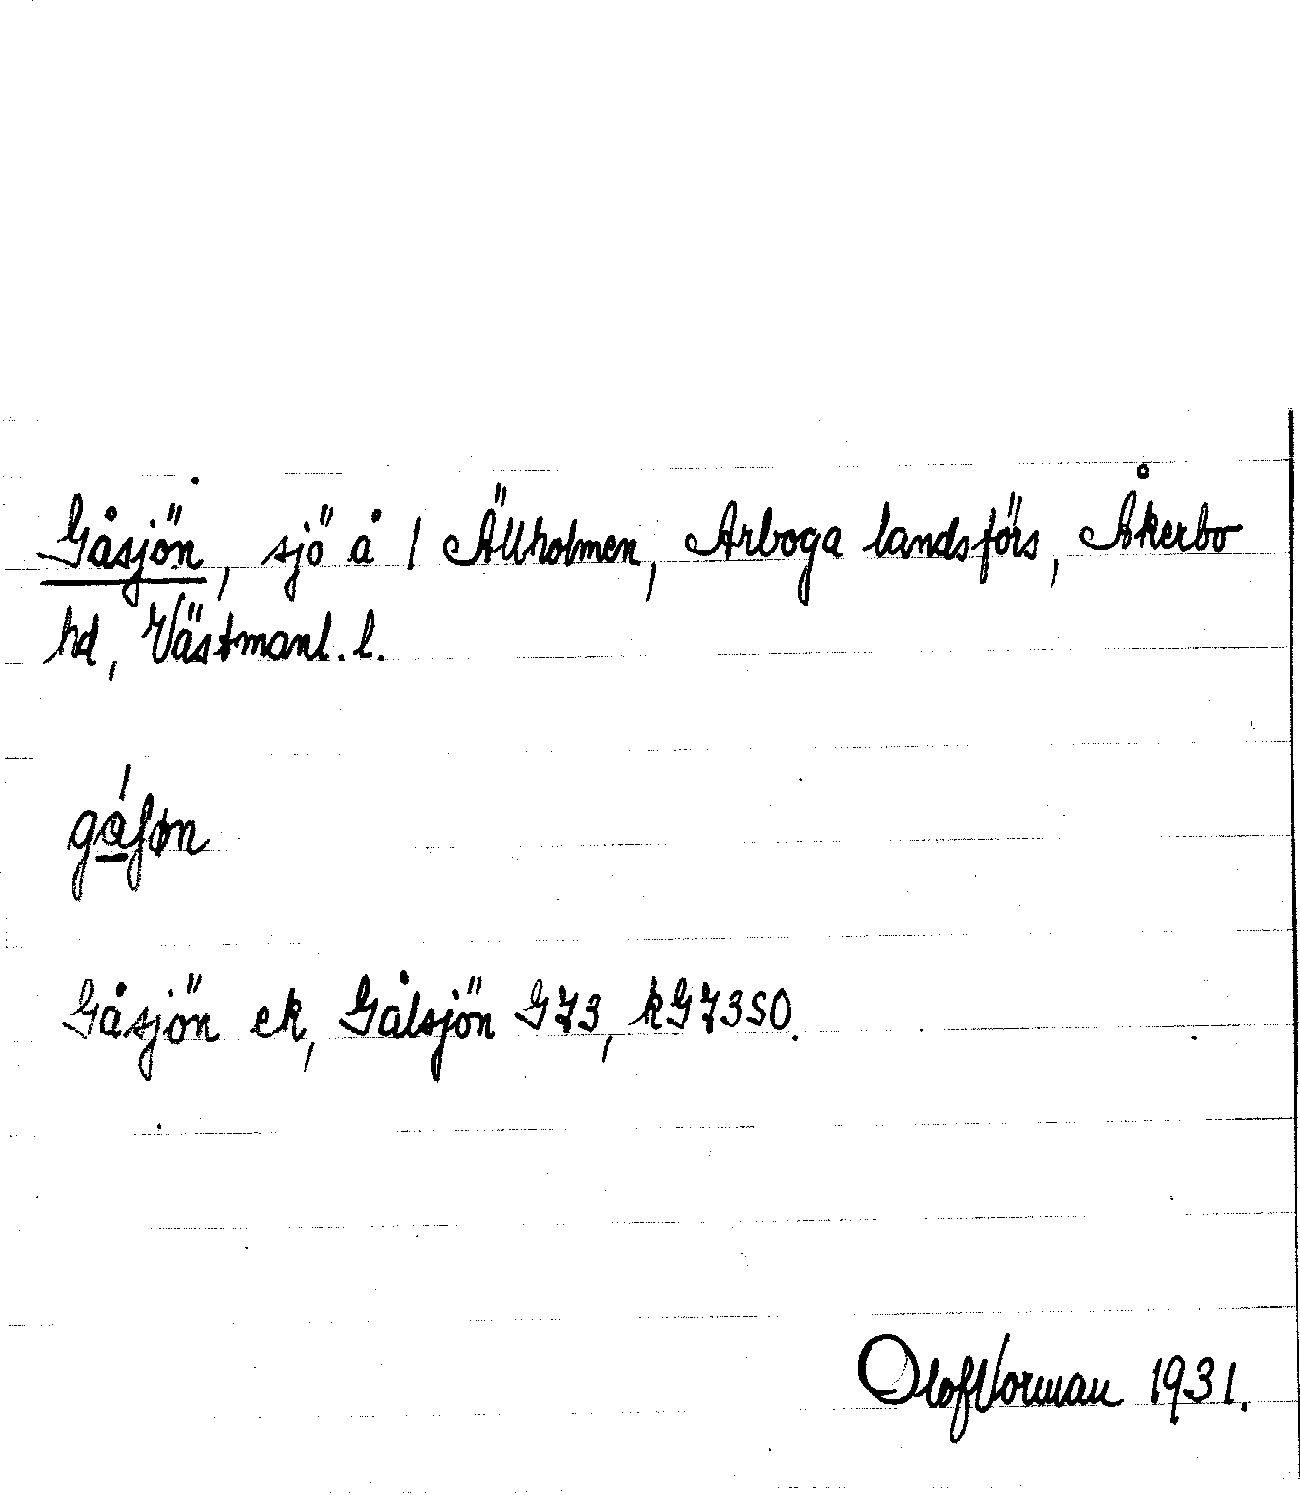 Gåsjön, sjö å 1 Ällholmen, Arboga landsförs, Åkerbo
hd, Västmanl. l.
gǻʃøn
Gåsjön ek, Gålsjön G73, kG73SO.
Olof Norman 1931.